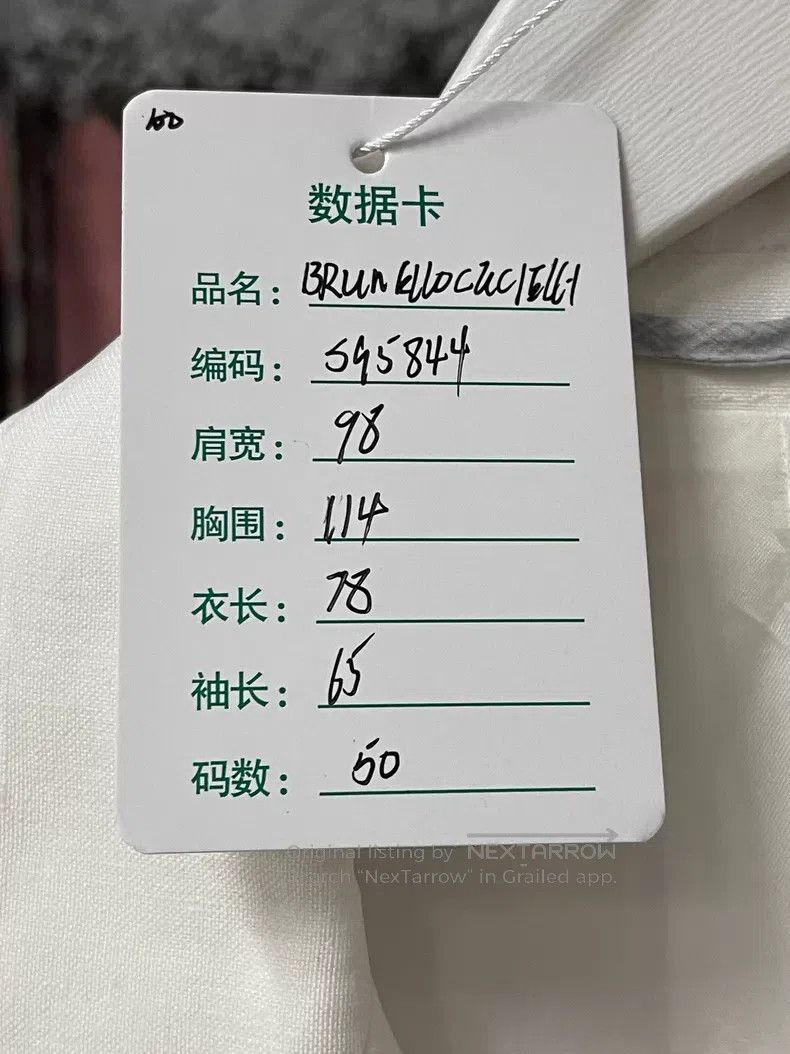 100
数据卡
品名： BRUnELLOCUCIELLI
编码： SG5844
肩宽： 98
胸围： 114
衣长： 78
袖长： 65
码数： 50
Original listing by NEXTARROW
Search "NexTarrow" in Grailed app.